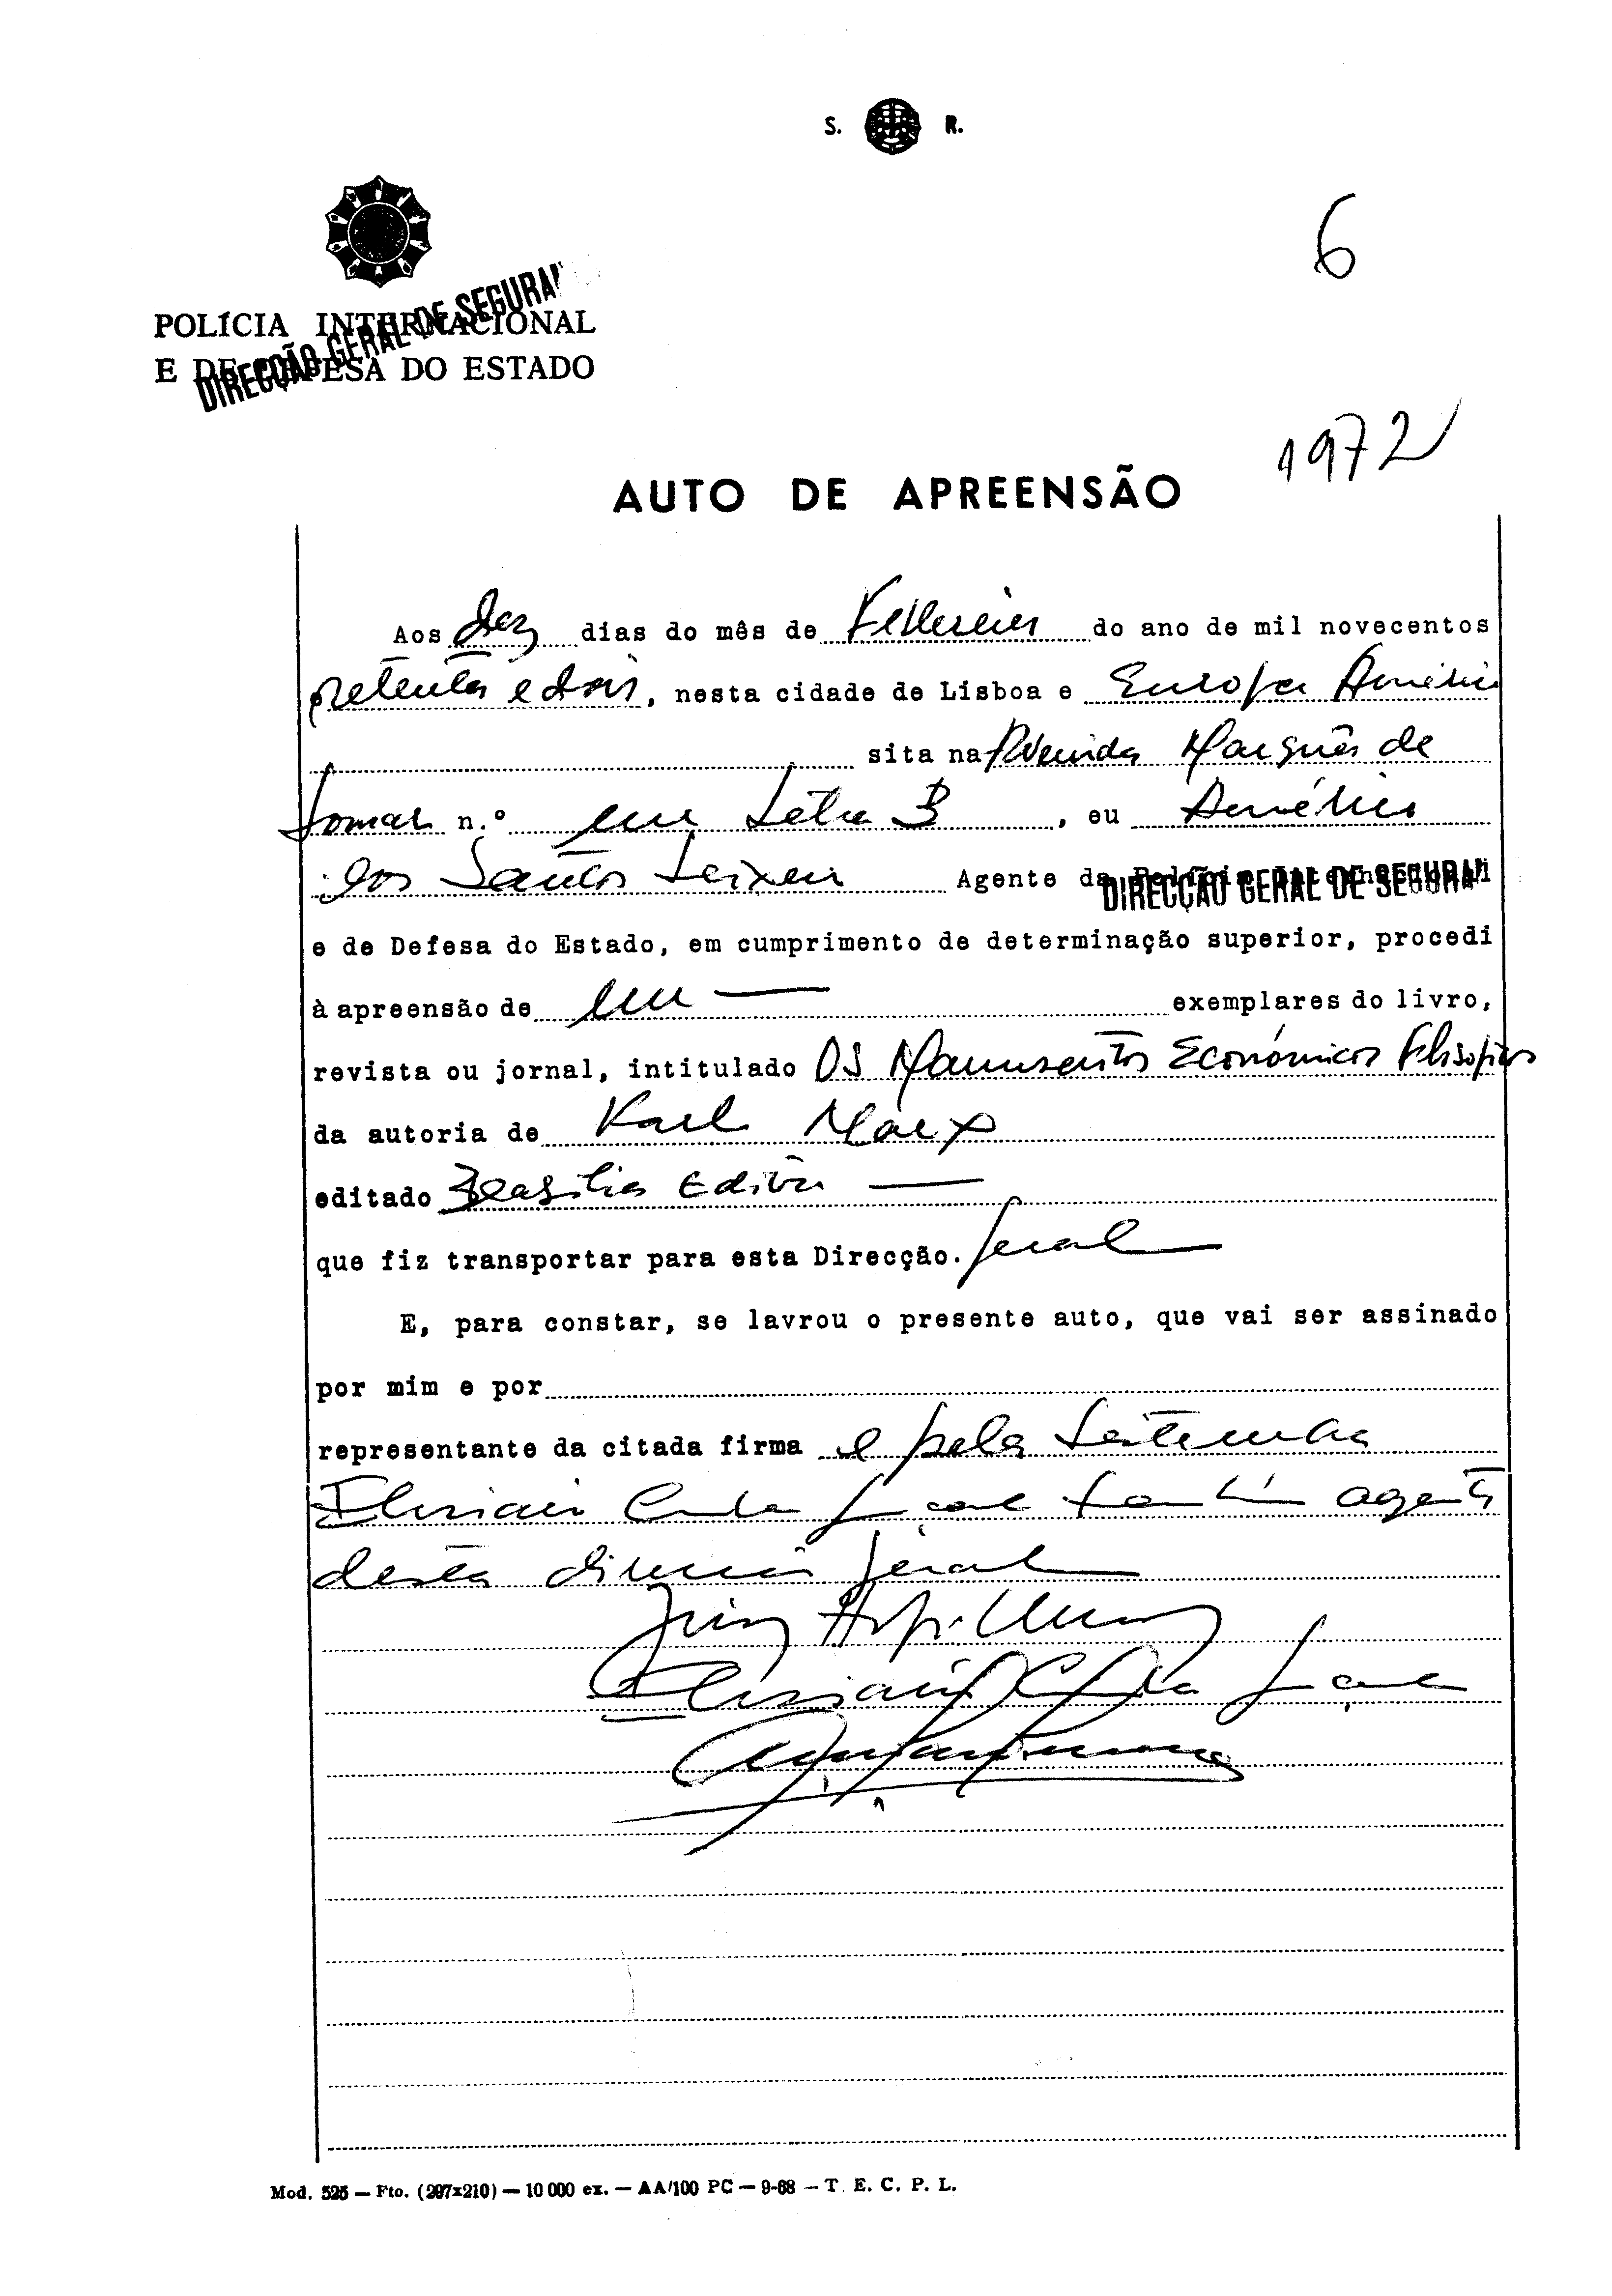 S. R.
6
POLÍCIA INTERNACIONAL
E DE DEFESA DO ESTADO
DIRECÇÃO GERAL DE SEGURAN
1972
AUTO DE APREENSÃO
Aos dez dias do mês de Fevereiro do ano de mil novecentos
setenta e dois, nesta cidade de Lisboa e Europa América
sita na Avenida Marquês de
Tomar n.º um Letra B, eu Américo
dos Santos Teixeira Agente da Polícia Internacional
DIRECÇÃO GERAL DE SEGURAN
e de Defesa do Estado, em cumprimento de determinação superior, procedi
à apreensão de um — exemplares do livro,
revista ou jornal, intitulado OS Manuscritos Económicos Filosóficos
da autoria de Karl Marx
editado Brasília Editora —
que fiz transportar para esta Direcção. Geral
E, para constar, se lavrou o presente auto, que vai ser assinado
por mim e por
representante da citada firma e pela testemunha
também agente
desta direcção geral
Mod. 525 — Fto. (297x210) — 10 000 ex. — AA/100 PC — 9-68 — T. E. C. P. L.